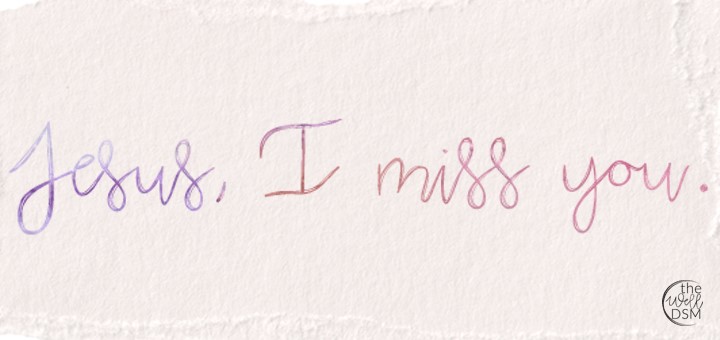 Jesus, I miss you.
the
well
DSM